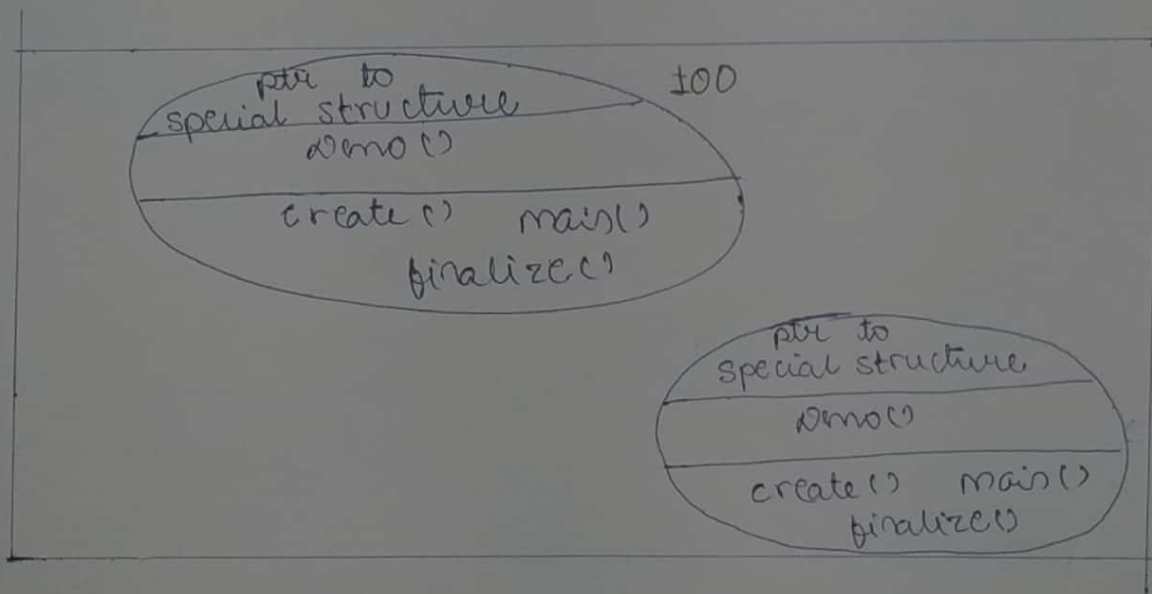 ptr to 100
special structure
Demo()
create() main()
finalize()
ptr to
special structure
Demo()
create() main()
finalize()